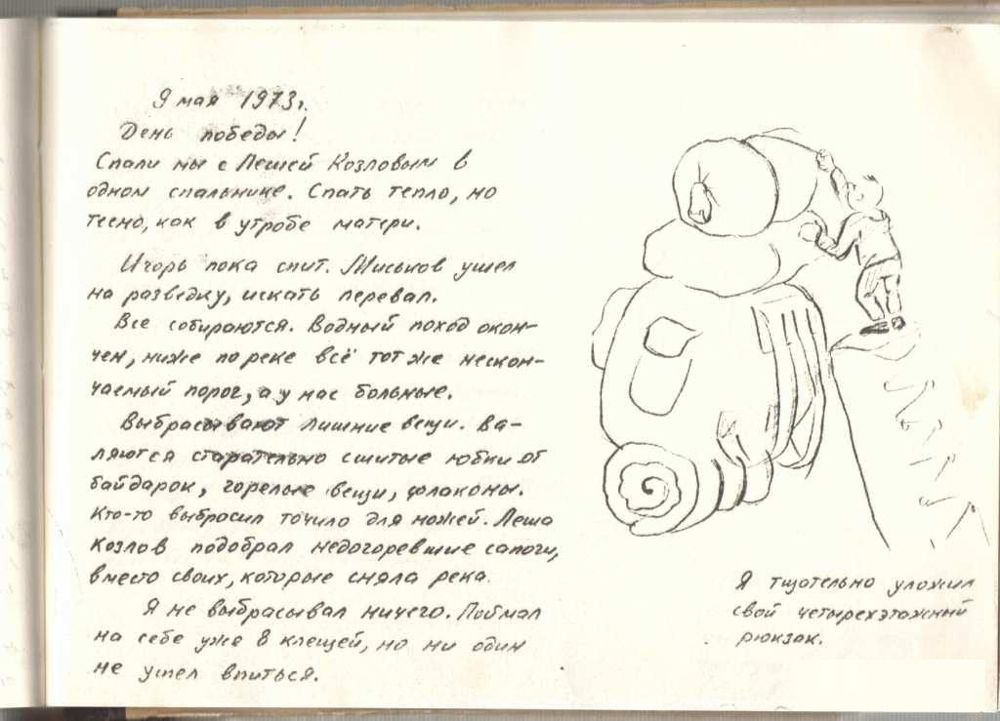 9 мая 1973г.
День победы!
Спали мы с Лешей Козловым в
одном спальнике. Спать тепло, но
тесно, как в утробе матери.
Игорь пока спит. Миськов ушел
на разведку, искать перевал.
Все собираются. Водный поход окон-
чен, ниже по реке всё тот же нескон-
чаемый порог, а у нас больные.
Выбрасывают лишние вещи. Ва-
ляются старательно сшитые юбки от
байдарок, горелые вещи, флаконы.
Кто-то выбросил точило для ножей. Леша
Козлов подобрал недогоревшие сапоги,
вместо своих, которые сняла река.
Я не выбрасывал ничего. Поймал
на себе уже 8 клещей, но ни один
не успел впиться.
Я тщательно уложил
свой четырехэтажный
рюкзак.